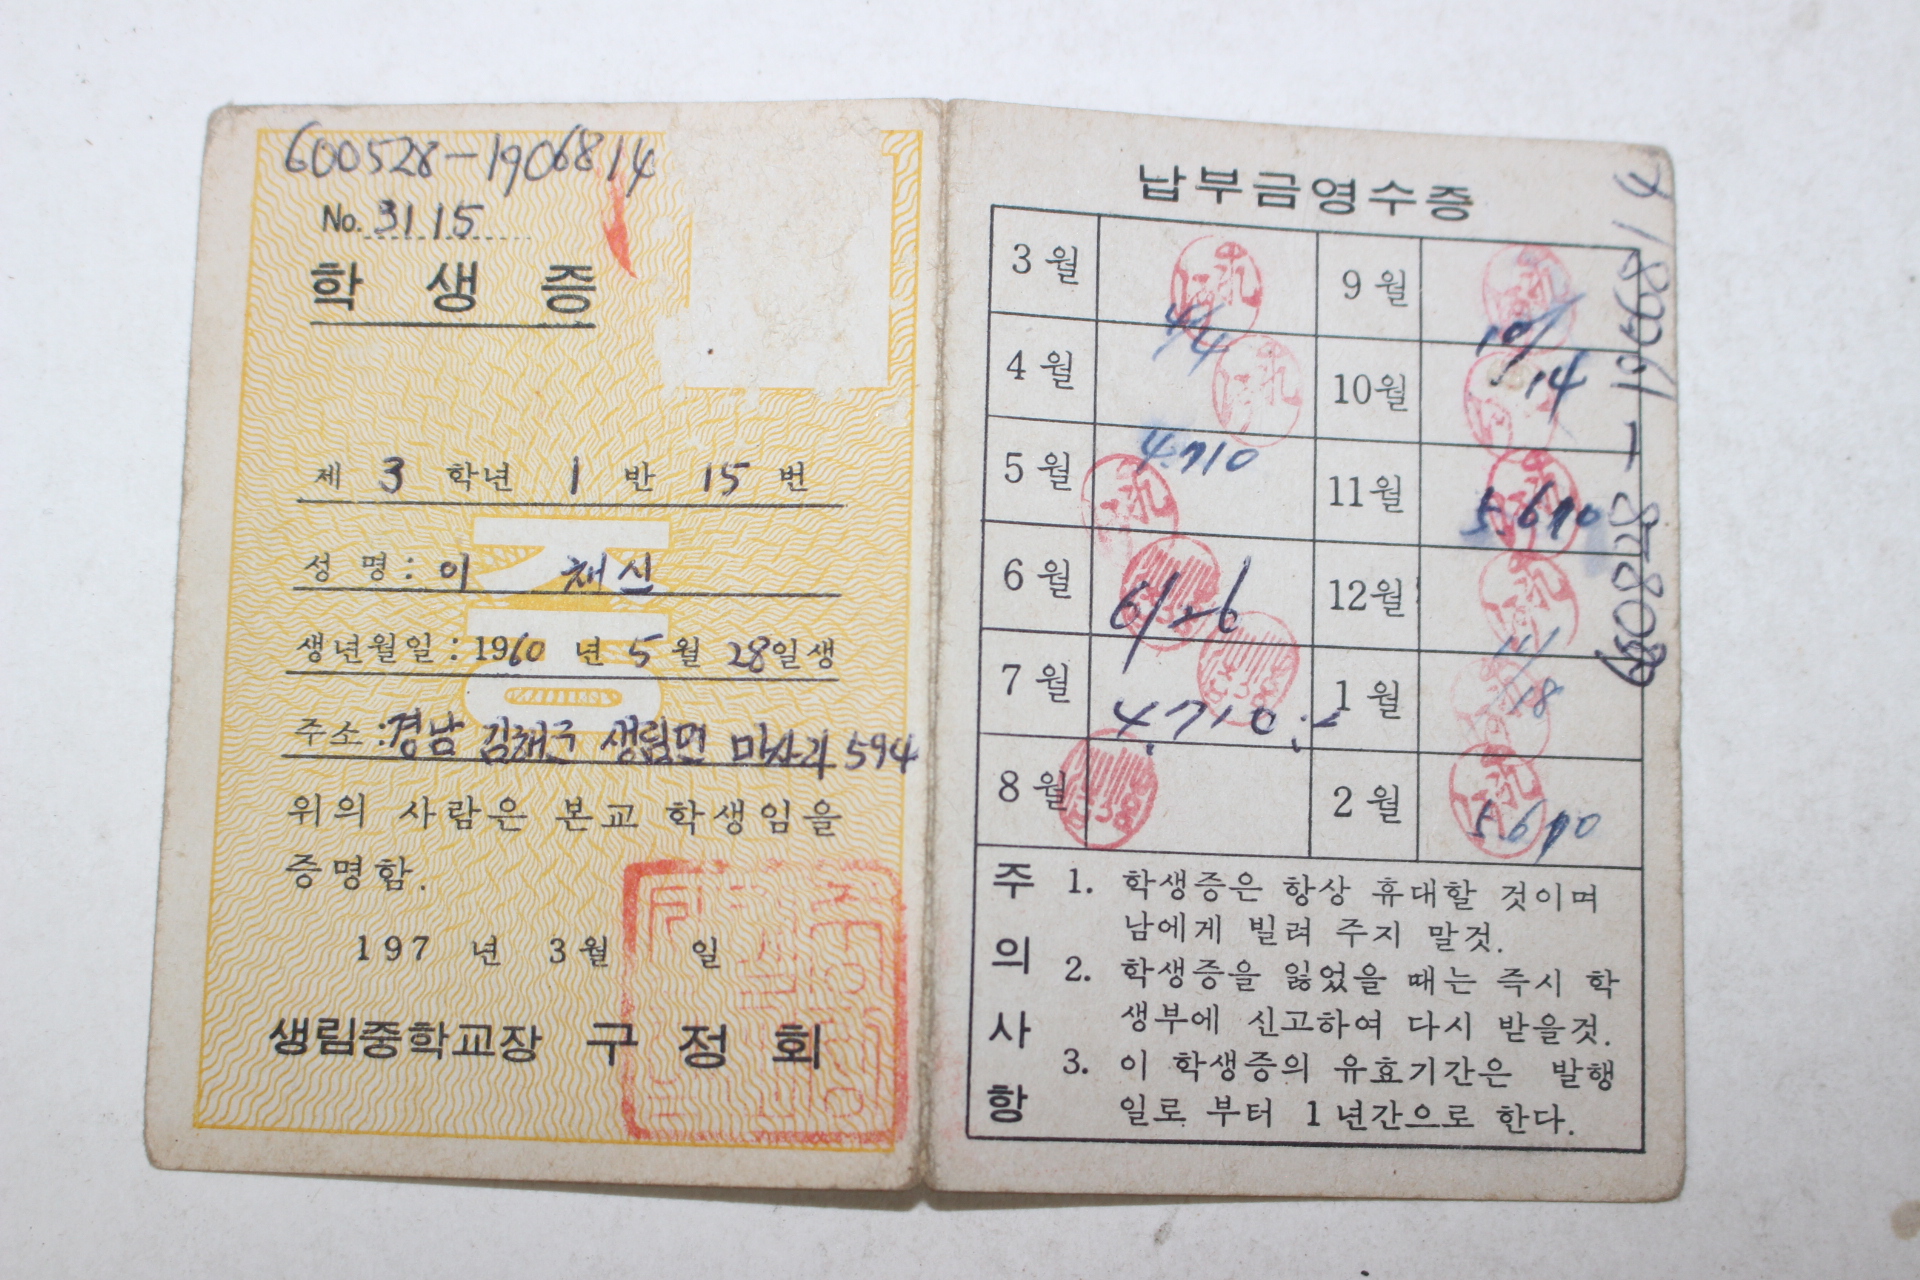 600528-1906814
No. 3115
학 생 증
제 3 학년 1 반 15 번
성 명: 이 채신
생년월일: 1960 년 5 월 28일생
주소: 경남 김해군 생림면 마사리 594
위의 사람은 본교 학생임을
증명함.
197 년 3월 일
생림중학교장 구 정 회
납부금영수증
3월 4/4 9월 10/14
4월 4.710 10월
5월 11월 5.610
6월 6/26 12월
7월 4.710 1월 11/18
8월 2월 5.610
주의사항
1. 학생증은 항상 휴대할 것이며
남에게 빌려 주지 말것.
2. 학생증을 잃었을 때는 즉시 학
생부에 신고하여 다시 받을것.
3. 이 학생증의 유효기간은 발행
일로 부터 1년간으로 한다.